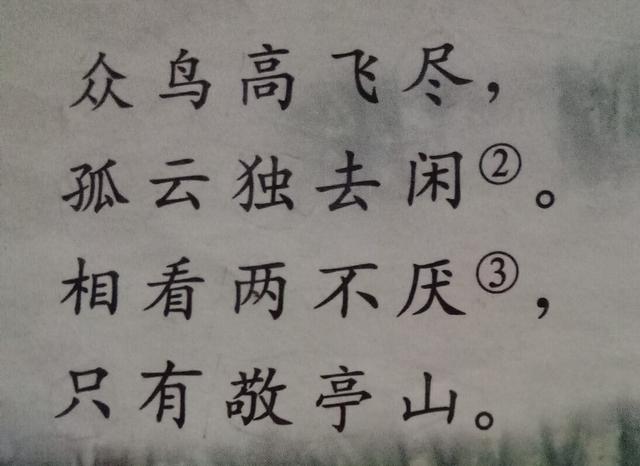 众鸟高飞尽，
孤云独去闲②。
相看两不厌③，
只有敬亭山。